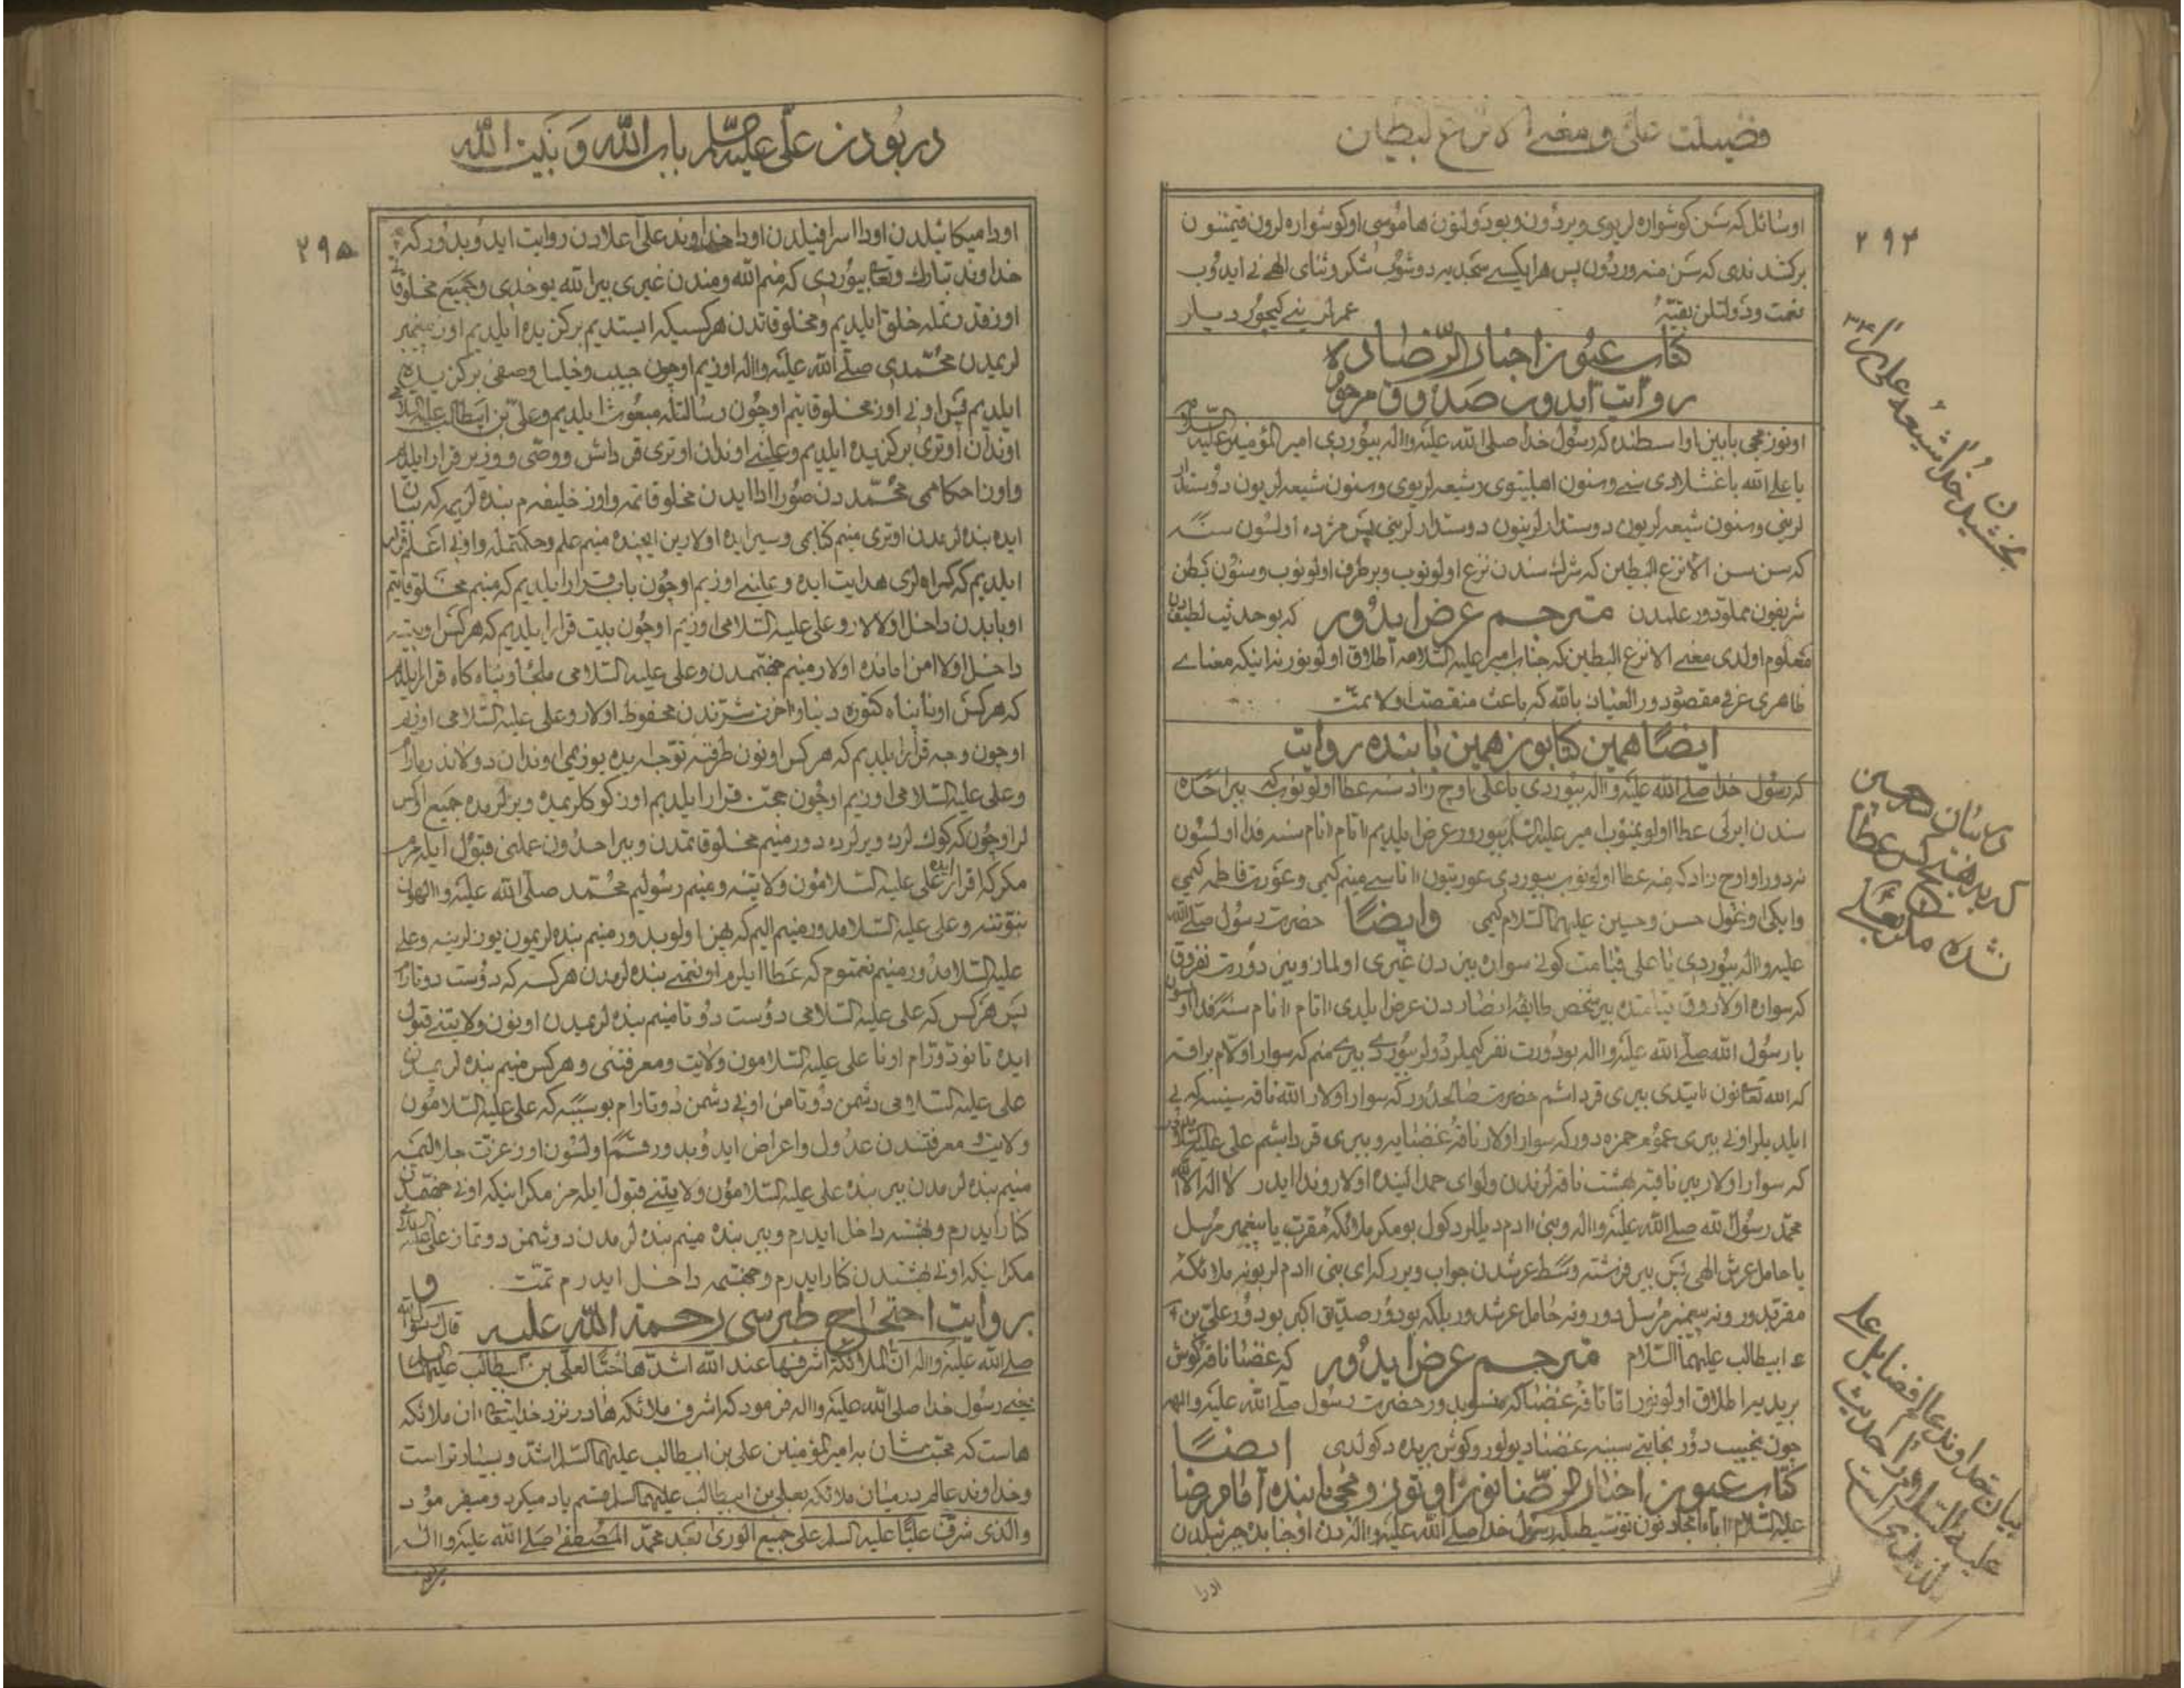 فضیلت علی و معنی الانزع البطین
۲۹۴
اوسائل که سن کوشواره لریوی ویردون وبودولتون هامؤسی اوکوشواره لرون قیمتنون
برکتند ندی که سن منه وردون پس هر ایکیسی سجدیه دوشوب شکر وثنای الهی نی ایدوب
نعمت ودولتلن بقیّهٔ عمرلرینی کیچوردیلر
کتاب عیون اخبار الرّضاده
روایت ایدوب صدوق مرحوم
اوتوزمجی بابین اواسطنده که رسول خدا صلی الله علیه واله بیوردی امیر المؤمنین علیه السلامه
یا علی الله باغشلادی سنی وسنون اهلبیتوی وشیعه لریوی وسنون شیعه لریون دوستدار
لرینی وسنون شیعه لریون دوستدارلرینون دوستدارلرینی پس مژده اولسون سنه
که سن سن الانزع البطین که شرک سندن نزع اولونوب وبرطرف اولونوب وسنون بطن
شریفون مملودور علمدن مترجم عرض ایدور که بو حدیث لطیفدن
معلوم اولدی معنی الانزع البطین که جناب امیر علیه السلامه اطلاق اولونور نه اینکه معنای
ظاهری عرفی مقصوددور العیاذ بالله که باعث منقصت اولا تمت
ایضًا همین کتابون همین بابنده روایت
که رسول خدا صلی الله علیه واله بیوردی یا علی اوچ زاد سنه عطا اولونوب که بیر احده
سندن ایرلی عطا اولونمیوب امیر علیه السلام بیورور عرض ایلدیم اتام انام سنه فدا اولسون
نه دور او اوچ زاد که منه عطا اولونوب بیوردی عورتیون اناسی مینم کیمی وعورت فاطمه کیمی
وایکی اوغول حسن وحسین علیهما السلام کیمی وایضًا حضرت رسول صلی الله
علیه واله بیوردی یا علی قیامت کونی سواره بیزدن غیری اولماز وبیز دورت نفروق
که سواره اولاروق قیامتده بیر شخص طایفه انصاردن عرض ایلدی اتام انام سنه فدا اولسون
یا رسول الله صلی الله علیه واله بو دورت نفر کیملردولر بیوردی بیری منم که سوار اولام براقه
که الله تعالی نون ایتدی بیری قرداشم حضرت صالحدور که سوار اولار الله ناقه سینه که پی
ایلدیلر اونی بیری عموم حمزه دور که سوار اولار ناقهٔ غضبایه وبیری قرداشم علی علیه السلام
که سوار اولار بیر ناقیه بهشت ناقه لرندن ولوای حمد الینده اولار وندا ایدر لا اله الا الله
محمّد رسول الله صلی الله علیه واله وبنی ادم دیللر دکول بو مکر ملائکهٔ مقرب یا پیغمبر مرسل
یا حامل عرش الهی پس بیر فرشته وسط عرشدن جواب ویرر که ای بنی ادم لر بو نه ملائکهٔ
مقربدور ونه پیغمبر مرسل دور ونه حامل عرشدور بلکه بودور صدیق اکبر بودور علی بن
ابیطالب علیهما السلام مترجم عرض ایدور که غضبا ناقه کوش
بریدیه اطلاق اولونور اما ناقهٔ غضبا که منسوبدور حضرت رسول صلی الله علیه والهه
چون نجیب دور نجابتی سببه غضبا دیولور وکوش بریده دکولدی ایضًا
کتاب عیون اخبار الرّضانون اوتوزومجی بابنده امام رضا
علیه السلام اباء امجادنون توسیطیله رسول خدا صلی الله علیه والهدن اوجنابده جبرئیلدن
اودا
بخشیدن خدا شیعهٔ علی را
در بیان سه چیز
که به هیچ کس عطا
نشده مکر بعلی
بیان خداوند عالم فضایل علی
علیه السلام را و در حدیث
در بودن علی علیه السلام باب الله و بیت الله
۲۹۵
اودا میکائیلدن اودا اسرافیلدن اودا خداوند علی اعلادن روایت ایدوبدور که
خداوند تبارک وتعالی بیوردی که منم الله ومندن غیری بیر الله یوخدی وجمیع مخلوقاتی
اوز قدرتمله خلق ایلدیم ومخلوقاتدن هر کسیکه ایستدیم برکزیده ایلدیم اوز پیغمبر
لریمدن محمّدی صلی الله علیه واله اوزیم اوچون حبیب وخلیل وصفی برکزیده
ایلدیم پس اونی اوز مخلوقاتیم اوچون رسالتله مبعوث ایلدیم وعلی بن ابیطالب علیه السلامی
اوندان اوتری برکزیده ایلدیم وعلینی اوندان اوتری قرداش ووصی ووزیر قرار ایلدیم
واونا حکامی محمّددن صورا ادا ایدن مخلوقاتمه واوز خلیفه م بنده لریمه که بیان
ایده بنده لرمدن اوتری منیم کتابمی وسیر ایده اولارین ایچنده منیم علم وحکمتمله واونی اعلم قرار
ایلدیم که کمراهلری هدایت ایده وعلینی اوزیم اوچون باب قرار ایلدیم که منیم مخلوقاتیم
او بابدن داخل اولالار وعلی علیه السلامی اوزیم اوچون بیت قرار ایلدیم که هر کس او بیته
داخل اولا امن امانده اولار منیم جهنّمدن وعلی علیه السلامی ملجأ وپناه کاه قرار ایلدیم
که هر کس اونا پناه کتوره دنیا واخرت شرّندن محفوظ اولار وعلی علیه السلامی اوزیم
اوچون وجه قرار ایلدیم که هر کس اونون طرفنه توجه ایده یوزیمی اوندان دولاندیرمارام
وعلی علیه السلامی اوزیم اوچون حجت قرار ایلدیم اوز کوکلریمده ویرلریمده جمیع او کس
لر اوچون که کوکلرده ویرلرده دور منیم مخلوقاتمدن وبیر احدون عملنی قبول ایلمرم
مکر که اقرار ایده علی علیه السلامون ولایتنه ومنیم رسولیم محمّد صلی الله علیه والهون
نبوّتنه وعلی علیه السلامدور منیم الیم که پهن اولوبدور منیم بنده لریمون یوزلرینه وعلی
علیه السلامدور منیم نعمتوم که عطا ایلرم او نعمتی بنده لرمدن هر کسه که دوست دوتارام
پس هر کس که علی علیه السلامی دوست دوتا منیم بنده لریمدن اونون ولایتنی قبول
ایده تانوددورام اونا علی علیه السلامون ولایت ومعرفتنی وهر کس منیم بنده لریمدن
علی علیه السلامی دشمن دوتا من اونی دشمن دوتارام بو سببه که علی علیه السلامون
ولایت ومعرفتندن عدول واعراض ایدوبدور قسم اولسون اوز عزّت جلالیمه
منیم بنده لرمدن بیر بنده علی علیه السلامون ولایتنی قبول ایلمز مکر اینکه اونی جهنّمدن
کنار ایدرم وبهشته داخل ایدرم وبیر بنده منیم بنده لرمدن دوشمن دوتماز علی علیه السلامی
مکر اینکه اونی بهشتدن کنار ایدرم وجهنّمه داخل ایدرم تمّت و
بروایت احتجاج طبرسی رحمة الله علیه قال رسول الله
صلی الله علیه واله انّ الملائکة اشرفها عند الله اشدّها حبًّا لعلی بن ابیطالب علیهما السلام
یعنی رسول خدا صلی الله علیه واله فرمود که اشرف ملائکه ها در نزد خدایتعالی ان ملائکه
هاست که محبّت شان به امیر المؤمنین علی بن ابیطالب علیهما السلم اشدّ و بسیارتر است
وخداوند عالم در میان ملائکه بعلی بن ابیطالب علیهما السلم قسم یاد میکرد ومیفرمود
والذی شرّف علیًّا علیه السلم علی جمیع الوری بعد محمّد المصطفی صلی الله علیه واله